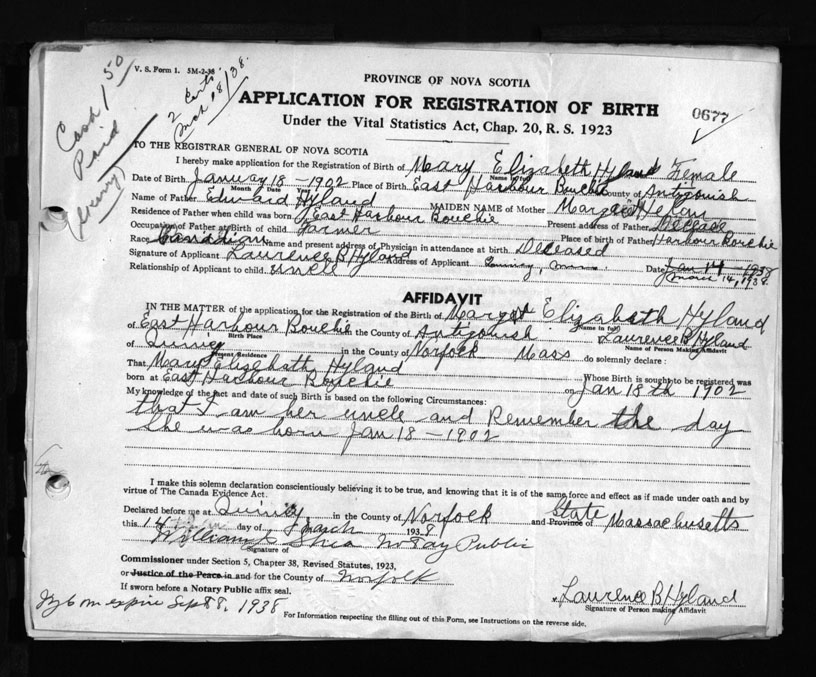 V. S. Form 1. 5M-2-38
Cash 1.50
Paid
2 Certs
Mch 18/38.
PROVINCE OF NOVA SCOTIA
APPLICATION FOR REGISTRATION OF BIRTH
0677
Under the Vital Statistics Act, Chap. 20, R. S. 1923
TO THE REGISTRAR GENERAL OF NOVA SCOTIA
I hereby make application for the Registration of Birth of Mary Elizabeth Hyland Female
Name in full
Date of Birth January 18 - 1902 Place of Birth East Harbour Bouchie County of Antigonish
Month Date
Name of Father Edward Hyland MAIDEN NAME of Mother Margret
Residence of Father when child was born East Harbour Bouchie Present address of Father
Occupation of Father at Birth of child farmer Place of birth of Father Harbour Bouchie
Race Canadian Name and present address of Physician in attendance at birth Deceased
Signature of Applicant Laurence B Hyland Address of Applicant Quincy, Mass. Date Jan 14 - 1938
March 14, 1938.
Relationship of Applicant to child Uncle
AFFIDAVIT
IN THE MATTER of the application for the Registration of the Birth of Margret Elizabeth Hyland
Name in full
of East Harbour Bouchie in the County of Antigonish Laurence B Hyland
Birth Place Name of Person Making Affidavit
of Quincy in the County of Norfock Mass do solemnly declare:
Present Residence
That Mary Elizebath Hyland Whose Birth is sought to be registered was
born at East Harbour Bouchie on Jan 18th 1902
My knowledge of the fact and date of such Birth is based on the following Circumstances:
that I am her uncle and Remember the day
she was born Jan 18 - 1902
I make this solemn declaration conscientiously believing it to be true, and knowing that it is of the same force and effect as if made under oath and by
virtue of The Canada Evidence Act.
Declared before me at Quincy in the County of Norfock State and Province of Massachusetts
this 14 day of March 1938
William C Shea Notary Public
Signature of
Commissioner under Section 5, Chapter 38, Revised Statutes, 1923,
or Justice of the Peace in and for the County of Norfolk
If sworn before a Notary Public affix seal.
Laurence B Hyland
Signature of Person making Affidavit
My Com expire Sept 8, 1938
For Information respecting the filling out of this Form, see Instructions on the reverse side.